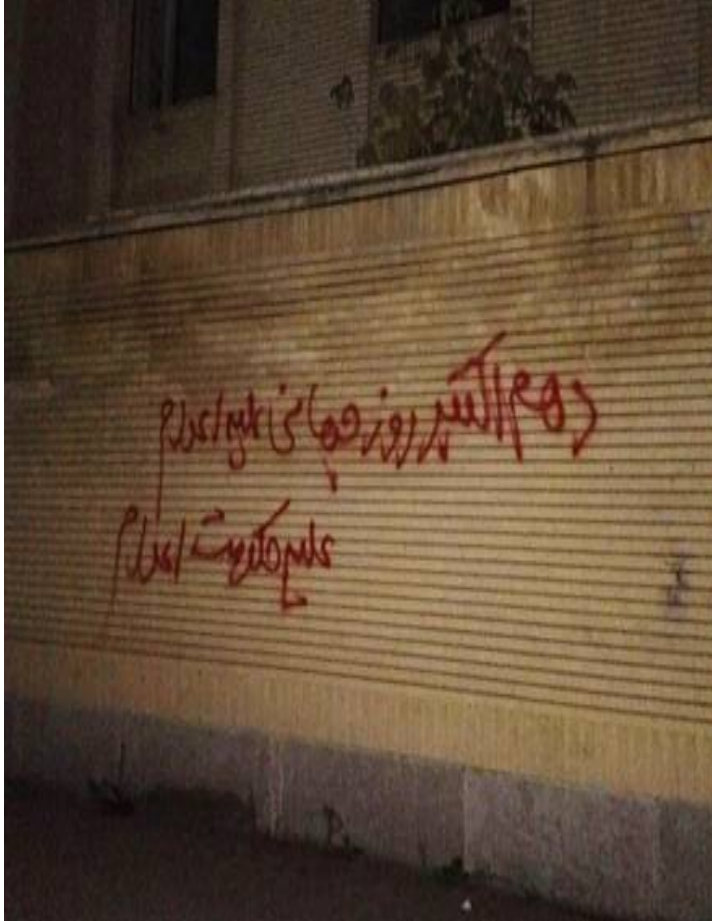 دهم اکتبر روز جهانی علیه اعدام
علیه حکومت اعدام